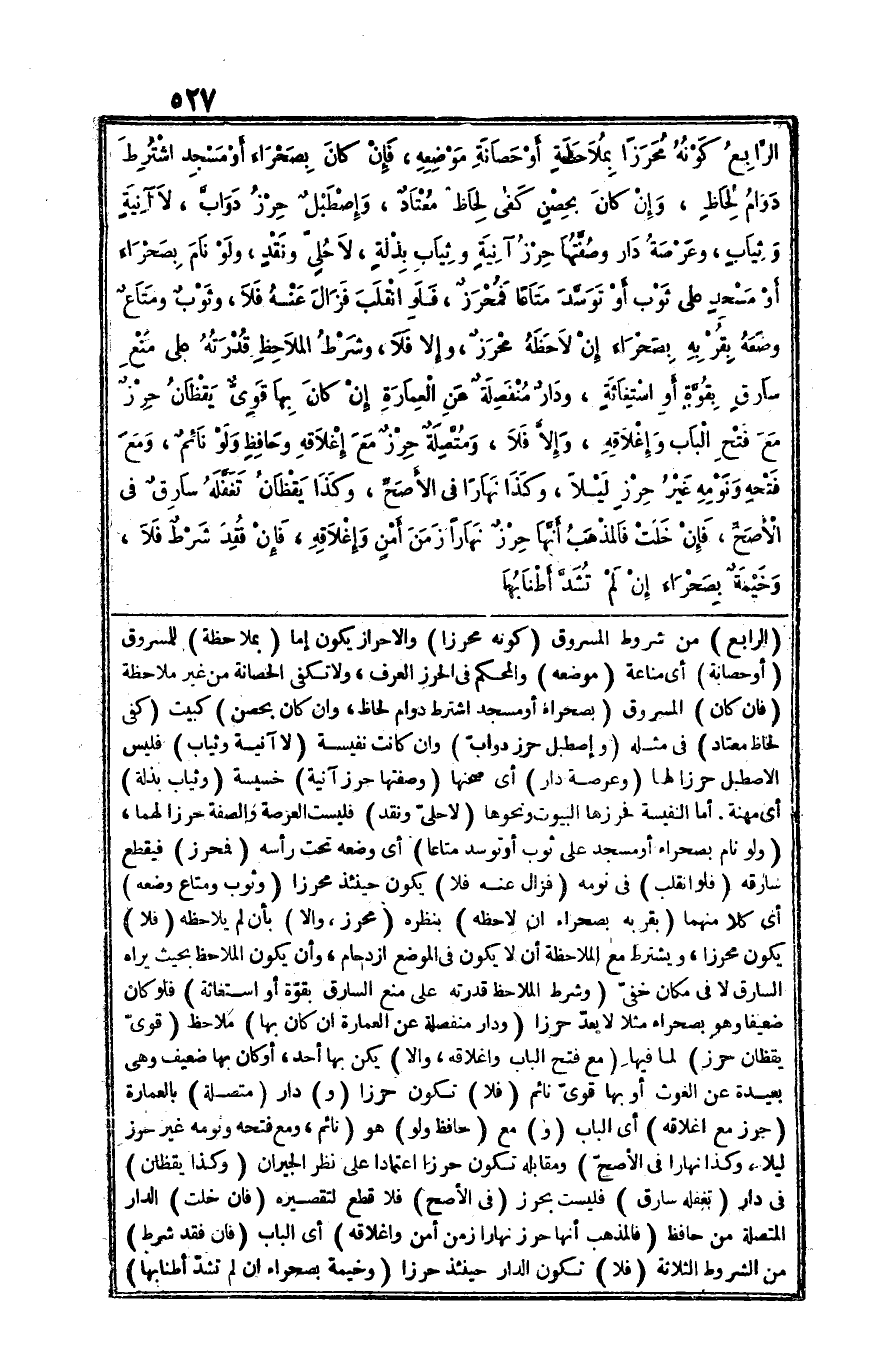 ٥٢٧
الرَّابِعُ كَوْنُهُ مُحْرَزًا بِمُلَاحَظَةٍ أَوْ حَصَانَةِ مَوْضِعِهِ ، فَإِنْ كَانَ بِصَحْرَاءَ أَوْ مَسْجِدٍ اشْتُرِطَ
دَوَامُ لِحَاظٍ ، وَإِنْ كَانَ بِحِصْنٍ كَفَى لِحَاظٌ مُعْتَادٌ ، وَإِصْطَبْلٌ حِرْزُ دَوَابَّ ، لَا آنِيَةٍ
وَثِيَابٍ ، وعَرْصَةُ دَارٍ وصُفَّتُهَا حِرْزُ آنِيَةٍ وثِيَابِ بِذْلَةٍ ، لَا حُلِيٍّ ونَقْدٍ ، ولَوْ نَامَ بِصَحْرَاءَ
أَوْ مَسْجِدٍ على ثَوْبٍ أَوْ تَوَسَّدَ مَتَاعًا فَمُحْرَزٌ ، فَلَوِ انْقَلَبَ فَزَالَ عَنْهُ فَلَا ، وثَوْبٌ ومَتَاعٌ
وضَعَهُ بِقُرْبِهِ بِصَحْرَاءَ إِنْ لَاحَظَهُ مُحْرَزٌ ، وإلا فَلَا ، وشَرْطُ المُلَاحِظِ قُدْرَتُهُ على مَنْعِ
سَارِقٍ بِقُوَّةٍ أَوِ اسْتِغَاثَةٍ ، ودَارٌ مُنْفَصِلَةٌ عَنِ الْعِمَارَةِ إِنْ كَانَ بِهَا قَوِيٌّ يَقْظَانُ حِرْزٌ
مَعَ فَتْحِ الْبَابِ وَإِغْلَاقِهِ ، وَإِلاَّ فَلَا ، وَمُتَّصِلَةٌ حِرْزٌ مَعَ إِغْلَاقِهِ وحَافِظٍ وَلَوْ نَائِمٌ ، وَمَعَ
فَتْحِهِ وَنَوْمِهِ غَيْرُ حِرْزٍ لَيْلًا ، وكَذَا نَهَارًا فى الأَصَحِّ ، وكَذَا يَقْظَانُ تَغَفَّلَهُ سَارِقٌ فى
الْأَصَحِّ ، فَإِنْ خَلَتْ فَالمَذْهَبُ أَنَّهَا حِرْزٌ نَهَاراً زَمَنَ أَمْنٍ وَإِغْلَاقِهِ ، فَإِنْ فُقِدَ شَرْطٌ فَلَا ،
وَخَيْمَةٌ بِصَحْرَاءَ إِنْ لَمْ تُشَدَّ أَطْنَابُهَا
( الرابع ) من شروط المسروق ( كونه محرزا ) والاحراز يكون إما ( بملاحظة ) للمسروق
( أوحصانة ) أى مناعة ( موضعه ) والمحكم فى الحرز العرف ، ولا تكفى الحصانة من غير ملاحظة
( فان كان ) المسروق ( بصحراء أومسجد اشترط دوام لحاظ ، وان كان بحصن ) كبيت ( كفى
لحاظ معتاد ) فى مثله ( وإصطبل حرز دوابّ ) وان كانت نفيسة ( لا آنية وثياب ) فليس
الاصطبل حرزا لها ( وعرصة دار ) أى صحنها ( وصفتها حرز آنية ) خسيسة ( وثياب بذلة )
أى مهنة . أما النفيسة فحرزها البيوت ونحوها ( لاحلىّ ونقد ) فليست العرصة والصفة حرزا لهما ،
( ولو نام بصحراء أومسجد على ثوب أوتوسد متاعا ) أى وضعه تحت رأسه ( فمحرز ) فيقطع
سارقه ( فلو انقلب ) فى نومه ( فزال عنه فلا ) يكون حينئذ محرزا ( وثوب ومتاع وضعه )
أى كلا منهما ( بقربه بصحراء ان لاحظه ) بنظره ( محرز ، والا ) بأن لم يلاحظه ( فلا )
يكون محرزا ، ويشترط مع الملاحظة أن لا يكون فى الموضع ازدحام ، وأن يكون الملاحظ بحيث يراه
السارق لا فى مكان خفىّ ( وشرط الملاحظ قدرته على منع السارق بقوّة أو استغاثة ) فلو كان
ضعيفا وهو بصحراء مثلا لا يعدّ حرزا ( ودار منفصلة عن العمارة ان كان بها ) ملاحظ ( قوىّ
يقظان حرز ) لما فيها ( مع فتح الباب واغلاقه ، والا ) يكن بها أحد ، أوكان بها ضعيف وهى
بعيدة عن الغوث أو بها قوىّ نائم ( فلا ) تكون حرزا ( و ) دار ( متصلة ) بالعمارة
( حرز مع اغلاقه ) أى الباب ( و ) مع ( حافظ ولو ) هو ( نائم ، ومع فتحه ونومه غير حرز
ليلا ، وكذا نهارا فى الأصحّ ) ومقابله تكون حرزا اعتمادا على نظر الجيران ( وكذا يقظان )
فى دار ( تغفله سارق ) فليست بحرز ( فى الأصح ) فلا قطع لتقصيره ( فان خلت ) الدار
المتصلة من حافظ ( فالمذهب أنها حرز نهارا زمن أمن واغلاقه ) أى الباب ( فان فقد شرط )
من الشروط الثلاثة ( فلا ) تكون الدار حينئذ حرزا ( وخيمة بصحراء ان لم تشدّ أطنابها )